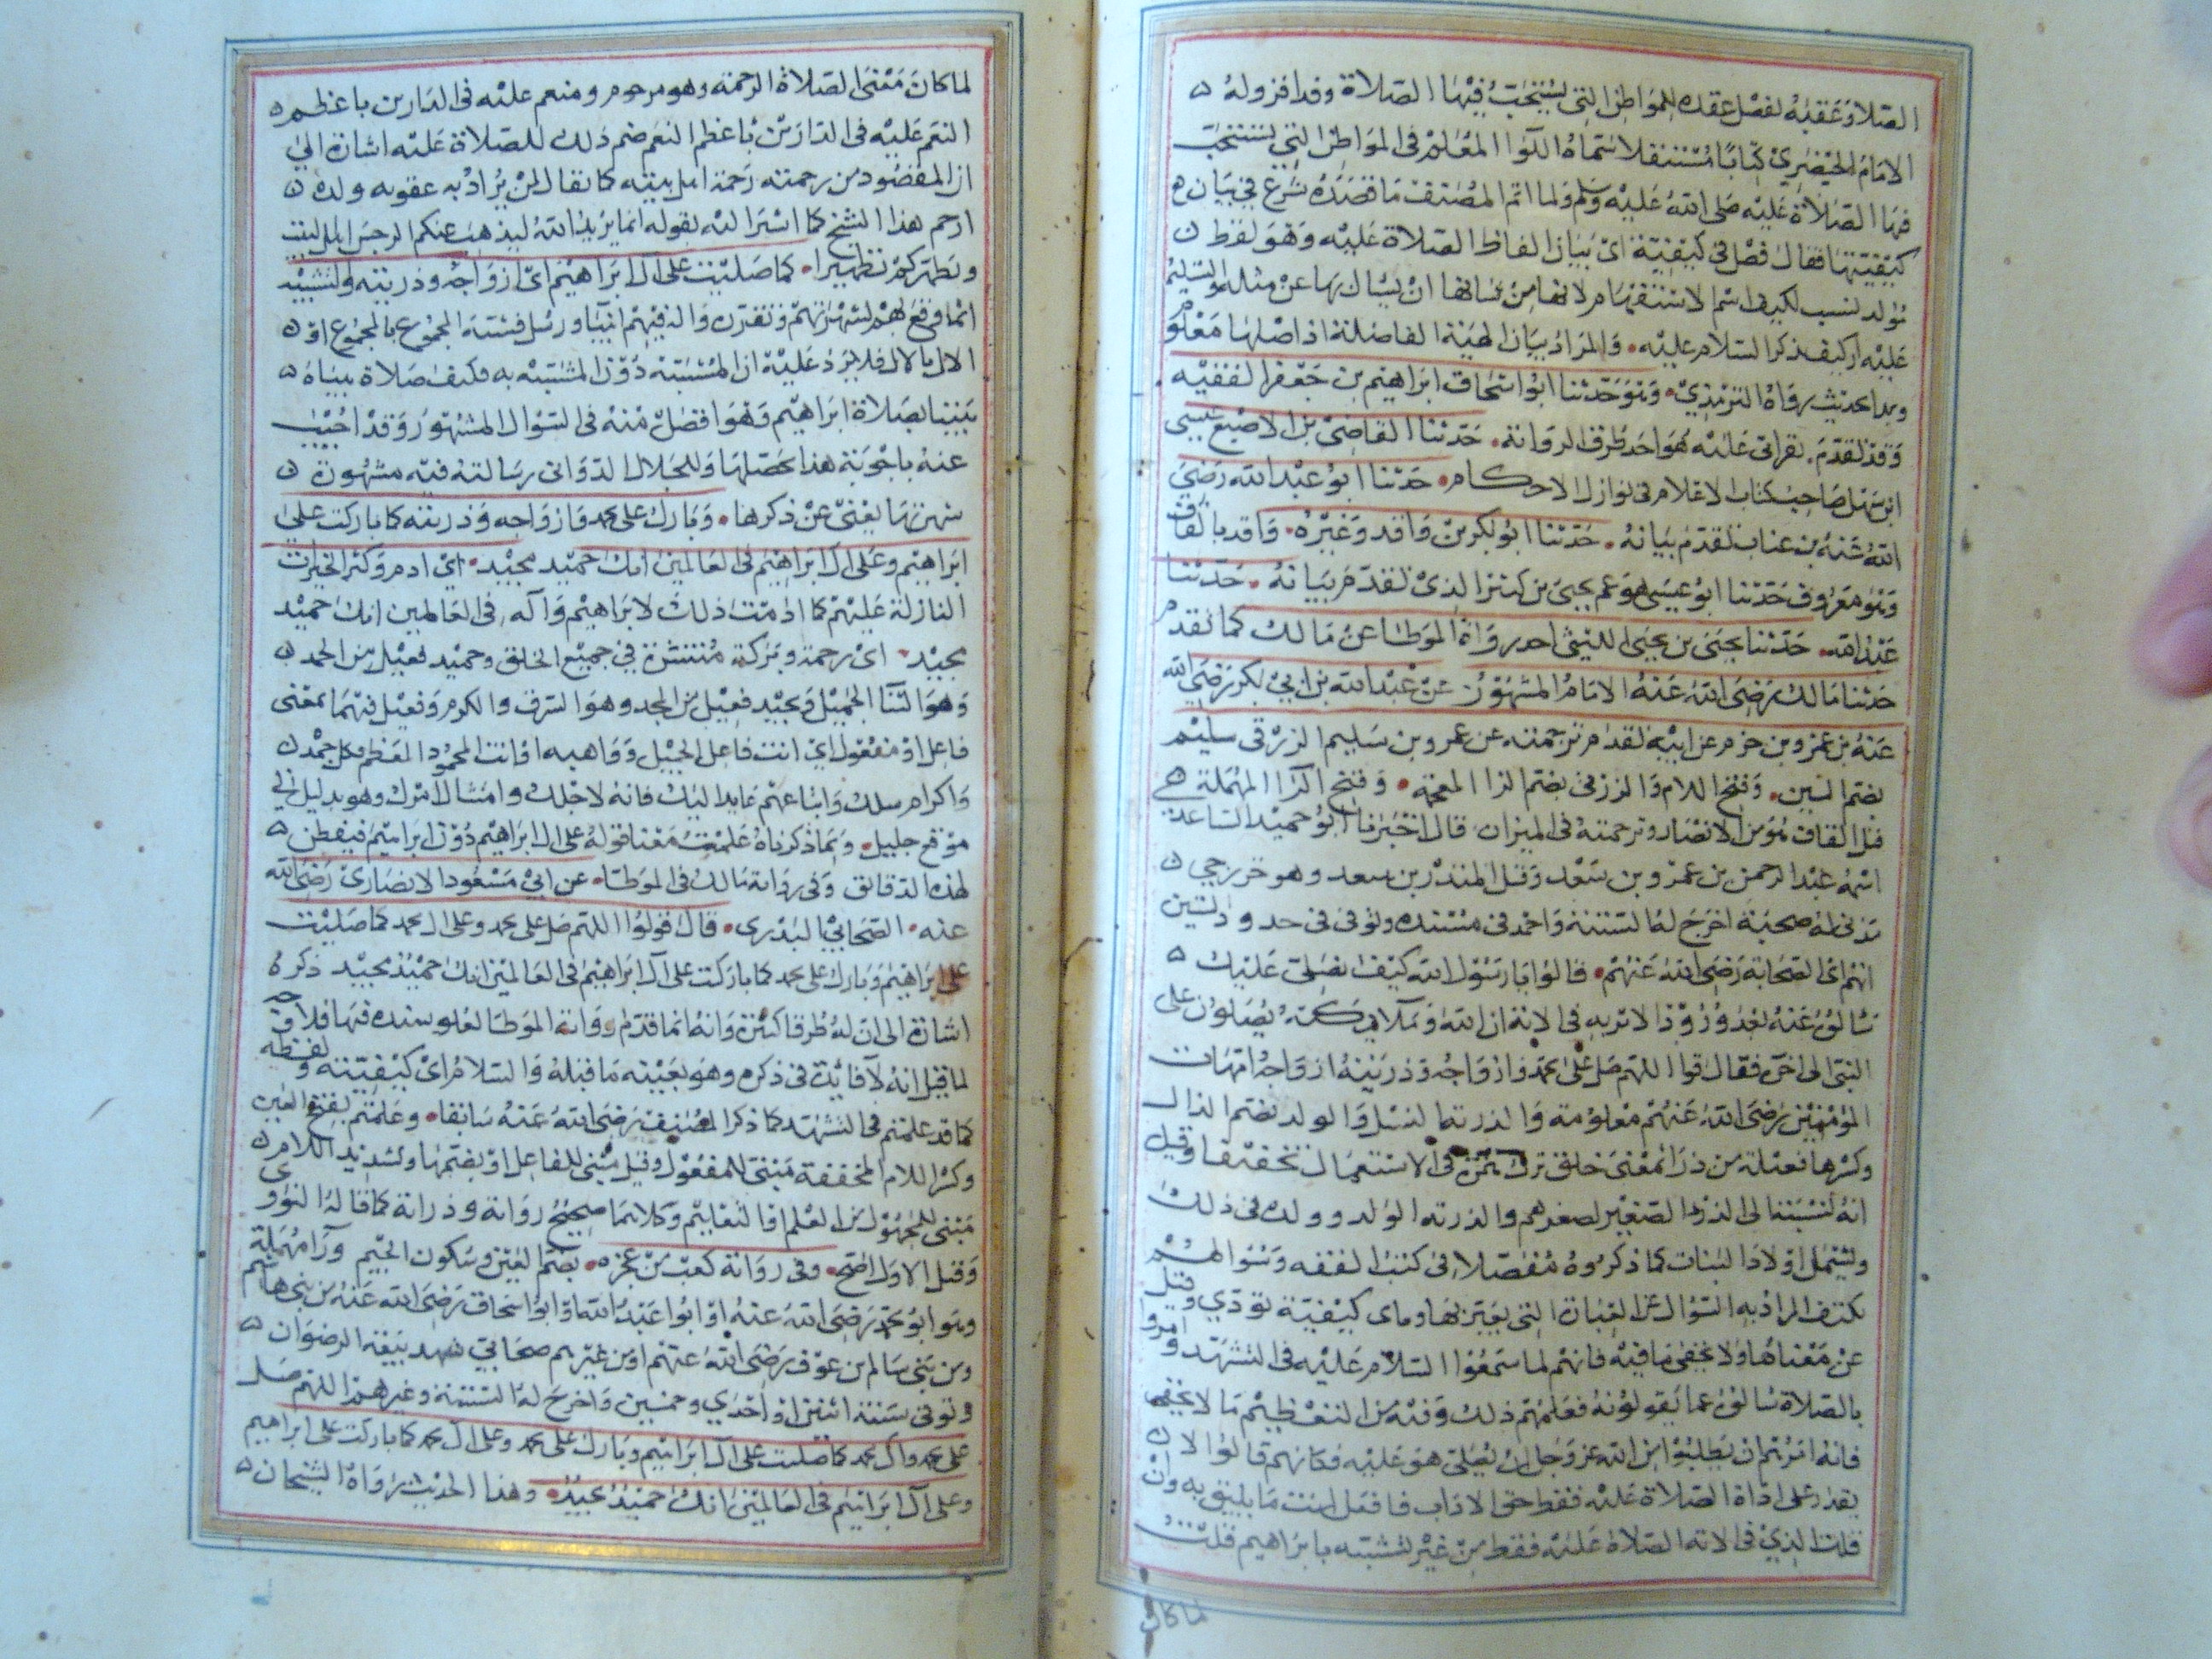 الصلاة وعقبه بفصل عقده للمواطن التي يستحب فيها الصلاة وقد افرد له
الامام الخيضري كتابا مستقلا سماه اللوا المعلم في المواطن التي تستحب
فيها الصلاة عليه صلى الله عليه وسلم ولما اتم المصنف ما قصده شرع في بيان
كيفيتها فقال فصل في كيفية اي بيان الفاظ الصلاة عليه وهو لفظ
مولد نسب لكيف اسم الاستفهام لانها من شانها ان يسال بها عن مثله والتسليم
عليه اي كيف ذكر السلام عليه والمراد بيان الهيئة الفاضلة اذ اصلها معلوم
وبدا بحديث رواه الترمذي وهو حدثنا ابو اسحاق ابراهيم بن جعفر الفقيه
وقد تقدم بقراتي عليه هو احد طرق الرواية حدثنا القاضي بن الاصبغ عيسى
ابن سهل صاحب كتاب الاعلام في نوازل الاحكام حدثنا ابو عبد الله رضي
الله عنه بن عتاب تقدم بيانه حدثنا ابو بكر بن واقد وغيره واقد بالقاف
وهو معروف حدثنا ابو عيسى هو عم يحيى بن كثير الذي تقدم بيانه حدثنا
عبد الله حدثنا يحيى بن يحيى الليثي احد رواة الموطا عن مالك كما تقدم
حدثنا مالك رضي الله عنه الامام المشهور عن عبد الله بن ابي بكر رضي الله
عنه بن عمرو بن حزم عن ابيه تقدم ترجمته عن عمرو بن سليم الزرقي سليم
بضم السين وفتح اللام والزرقي بضم الزا المعجمة وفتح الرا المهملة
قبل القاف هو من الانصار وترجمته في الميزان قال اخبرنا ابو حميد الساعدي
اسمه عبد الرحمن بن عمرو بن سعد وقيل المنذر بن سعد وهو خزرجي
مدني له صحبة اخرج له الستة واحمد في مسنده وتوفي في حدود الستين
انهم اي الصحابة رضي الله عنهم قالوا يا رسول الله كيف نصلي عليك
سالوه عنه بعد ورود الامر به في الاية ان الله وملائكته يصلون على
النبي الى اخره فقال قولوا اللهم صل على محمد وازواجه وذريته ازواجه امهات
المؤمنين رضي الله عنهم معلومة والذرية النسل والولد بضم الذال
وكسرها فعيلة من ذرا بمعنى خلق ترك همزه في الاستعمال تخفيفا وقيل
انه نسبة الى الذر الصغير لصغرهم والذرية الولد وولده في ذلك
ويشمل اولاد البنات كما ذكروه مفصلا في كتب الفقه وسوالهم
بكيف المراد به السوال عن العبارة التي يعبر بها وما اي كيفية تودي وقيل
عن معناها ولا يخفى ما فيه فانهم لما سمعوا السلام عليه في التشهد وامروا
بالصلاة سالوه عما يقولونه فعلمهم ذلك وفيه من التعظيم ما لا يخفى
فانه امرهم ان يطلبوا من الله عز وجل ان يصلي هو عليه فكانهم قالوا لا
يقدر على اداة الصلاة عليه فقط حتى الاداب فافعل انت ما يليق به وان
قلت الذي في الاية الصلاة عليه فقط من غير تشبيه بابراهيم قلت
لما كان
لما كان معنى الصلاة الرحمة وهو مرحوم ومنعم عليه في الدارين باعظم
النعم عليه في الدارين باعظم النعم ضم ذلك للصلاة عليه اشارة الى
ان المقصود من رحمته رحمة اهل بيته كما يقال لمن يراد به عقوبه ولده
ارحم هذا الشيخ كما اشير اليه بقوله انما يريد الله ليذهب عنكم الرجس اهل البيت
ويطهركم تطهيرا كما صليت على ال ابراهيم اي ازواجه وذريته والتشبيه
انما وقع بهم لشهرتهم وتقرره وانه فيهم انبيا ورسل فشبه المجموع بالمجموع او
الال بالال فلا يرد عليه ان المشبه دون المشبه به فكيف صلاة بيناه
نبينا بصلاة ابراهيم وهو افضل منه في السوال المشهور وقد اجيب
عنه باجوبة هذا محصلها وللجلال الدواني رسالة فيه مشهورة
شهرتها يغني عن ذكرها وبارك على محمد وازواجه وذريته كما باركت على
ابراهيم وعلى ال ابراهيم في العالمين انك حميد مجيد اي ادم وكثر الخيرات
النازلة عليهم كما ادمت ذلك لابراهيم وآله في العالمين انك حميد
مجيد اي رحمة وبركة منتشرة في جميع الخلق وحميد فعيل من الحمد
وهو الثنا الجميل ومجيد فعيل من المجد وهو الشرف والكرم وفعيل فيهما بمعنى
فاعل او مفعول اي انت فاعل الجميل وواهبه او انت المحمود المعظم فكل حمد
واكرام رسلك واتباعهم عايد اليك فانه لاجلك وامتثال امرك وهو بدليل في
موقع جليل ومما ذكرناه علمت معنا قوله على ال ابراهيم دون ابراهيم فتفطن
لهذه الدقائق وفي رواية مالك في الموطا عن ابي مسعود الانصاري رضي الله
عنه الصحابي البدري قال قولوا اللهم صل على محمد وعلى ال محمد كما صليت
على ابراهيم وبارك على محمد كما باركت على ال ابراهيم في العالمين انك حميد مجيد ذكره
اشارة الى ان له طرقا كثيرة وانه انما قدم رواية الموطا لعلو سنده فيها فلا وجه
لما قيل انه لا فائدة في ذكره وهو بعينه ما قبله والسلام اي كيفيته ولفظه
كما قد علمتم في التشهد كما ذكر المصنف رضي الله عنه سابقا وعلمتم بفتح العين
وكسر اللام المخففة مبني للمفعول وقيل مبني للفاعل او بضمها وتشديد اللام
مبني للمجهول من العلم او التعليم وكلاهما صحيح رواية ودراية كما قاله النووي
وقيل الاول اصح وفي رواية كعب بن عجره بضم العين وسكون الجيم ورا مهملة
وهو ابو محمد رضي الله عنه او ابو عبد الله او ابو اسحاق رضي الله عنه من بني هاشم
ومن بني سالم بن عوف رضي الله عنهم او من غيرهم صحابي شهد بيعة الرضوان
وتوفي سنة اثنين او احدي وخمسين واخرج له الستة وغيرهم اللهم صل
على محمد وال محمد كما صليت على ال ابراهيم وبارك على محمد وعلى ال محمد كما باركت على ابراهيم
وعلى ال ابراهيم في العالمين انك حميد مجيد وهذا الحديث رواه الشيخان